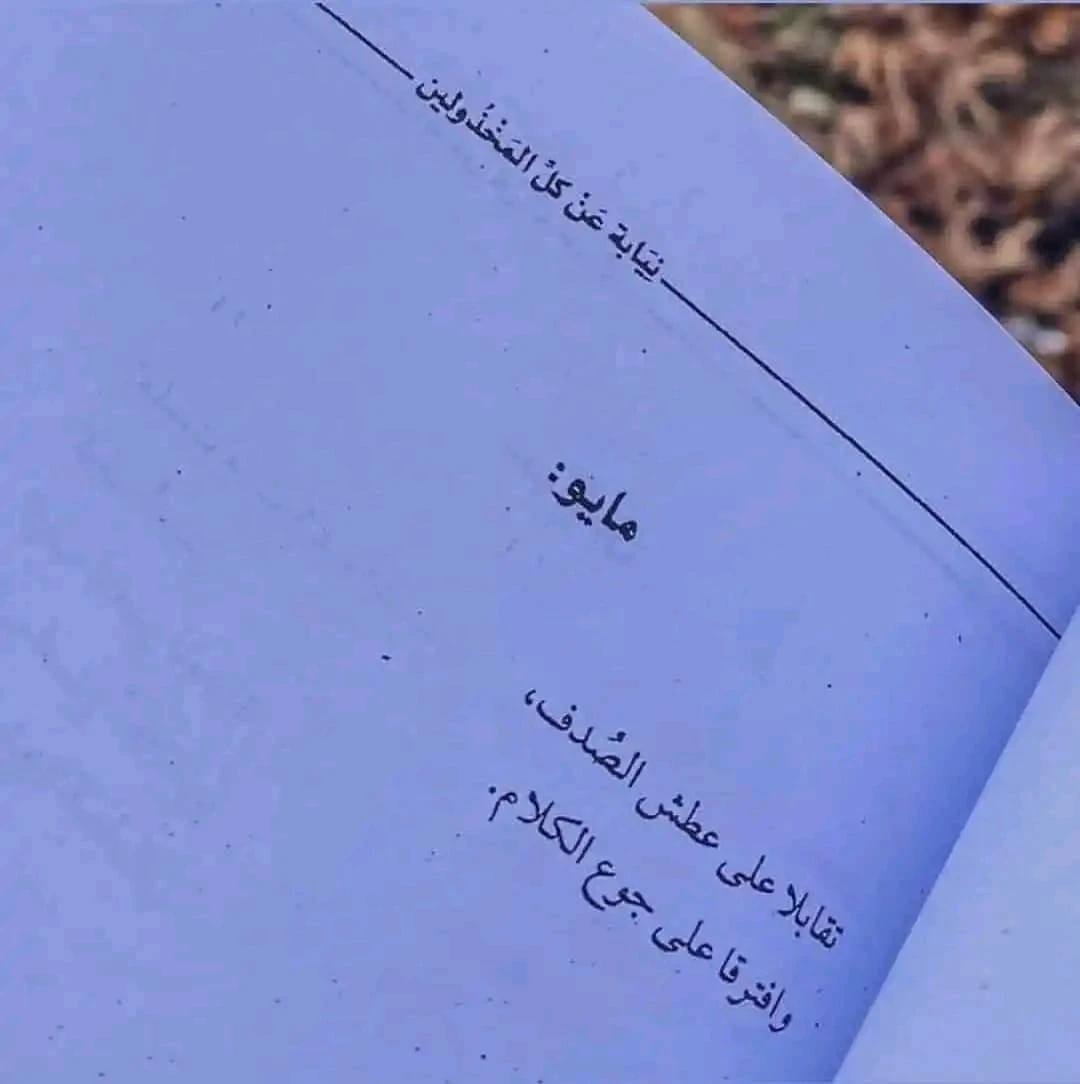 نِيَابة عَنْ كلِّ المَخْذُولين
مايو:
تقابلا على عطش الصُدف،
وافترقا على جوع الكلام.